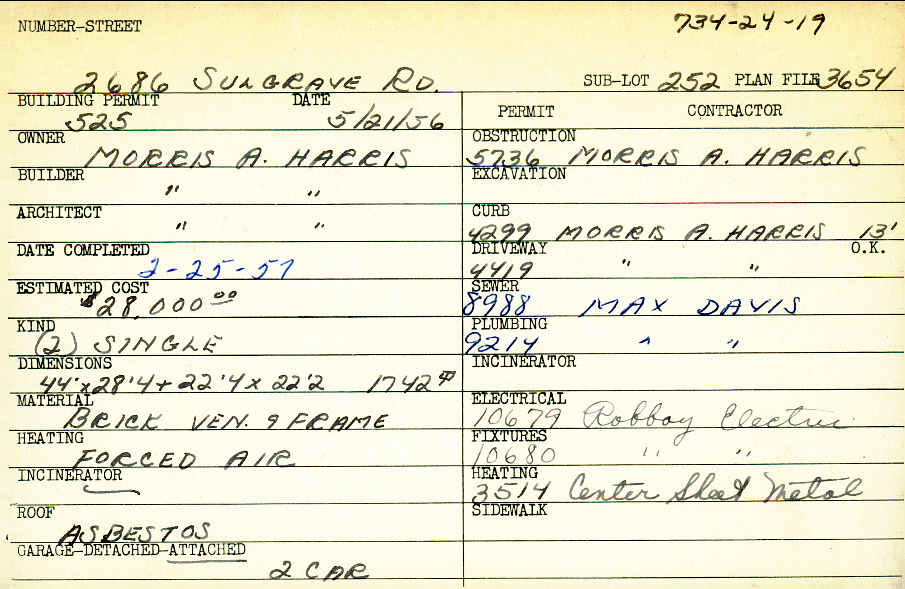 NUMBER-STREET 734-24-19
2686 SULGRAVE RD. SUB-LOT 252 PLAN FILE 3654
BUILDING PERMIT DATE PERMIT CONTRACTOR
525 5/21/56
OWNER OBSTRUCTION
MORRIS A. HARRIS 5736 MORRIS A. HARRIS
BUILDER EXCAVATION
" "
ARCHITECT CURB
" " 4299 MORRIS A. HARRIS 13'
DATE COMPLETED DRIVEWAY O.K.
2-25-57 4419 " "
ESTIMATED COST SEWER
$28,000.00 8988 MAX DAVIS
KIND PLUMBING
(2) SINGLE 9214 " "
DIMENSIONS INCINERATOR
44'x28'4+22'4x22'2 1742
MATERIAL ELECTRICAL
BRICK VEN. & FRAME 10679 Robboy Electric
HEATING FIXTURES
FORCED AIR 10680 " "
INCINERATOR HEATING
3514 Center Sheet Metal
ROOF SIDEWALK
ASBESTOS
GARAGE-DETACHED-ATTACHED
2 CAR